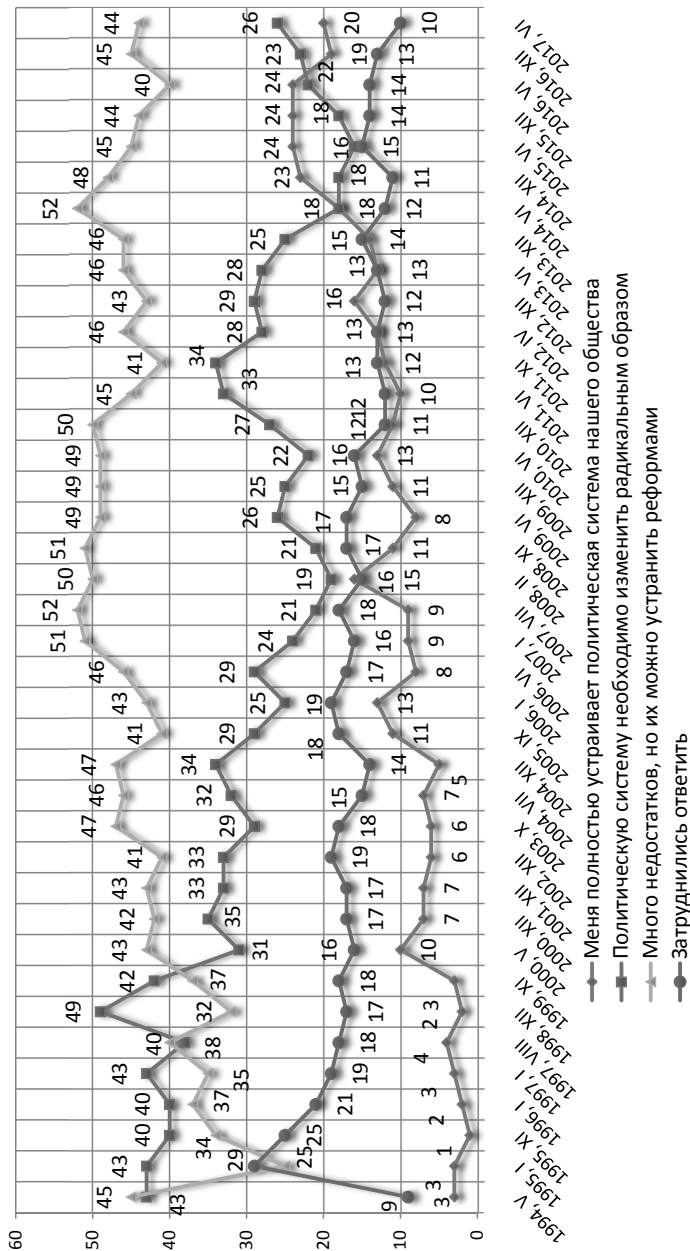 60
50
40
30
20
10
0
45 25 34 37 35 40 32 37 43 42 43 41 47 46 47 41 43 46 51 52 50 51 49 49 49 50 45 41 46 43 46 46 52 48 45 44 40 45 44
43 43 40 40 43 38 49 42 31 35 33 33 29 32 34 29 25 29 24 21 19 21 26 25 22 27 33 34 28 29 28 25 18 18 16 18 22 23 26
9 29 25 21 19 18 17 18 16 17 17 19 18 15 14 18 19 17 16 18 15 17 17 15 16 12 12 13 13 12 13 15 12 11 15 14 14 13 10
3 3 1 2 3 4 2 3 10 7 7 6 6 7 5 11 13 8 9 9 16 11 8 11 13 11 10 12 13 16 13 14 18 23 24 24 24 19 20
1994, V
1995, I
1995, XI
1996, I
1997, I
1997, VIII
1998, XII
1999, XI
2000, V
2000, XII
2001, XII
2002, XII
2003, X
2004, VII
2004, XII
2005, IX
2006, I
2006, VI
2007, I
2007, VII
2008, II
2008, XI
2009, VI
2009, XII
2010, VI
2010, XII
2011, VI
2011, XI
2012, IV
2012, XII
2013, VI
2013, XII
2014, VI
2014, XII
2015, VI
2015, XII
2016, VI
2016, XII
2017, VI
Меня полностью устраивает политическая система нашего общества
Политическую систему необходимо изменить радикальным образом
Много недостатков, но их можно устранить реформами
Затруднились ответить